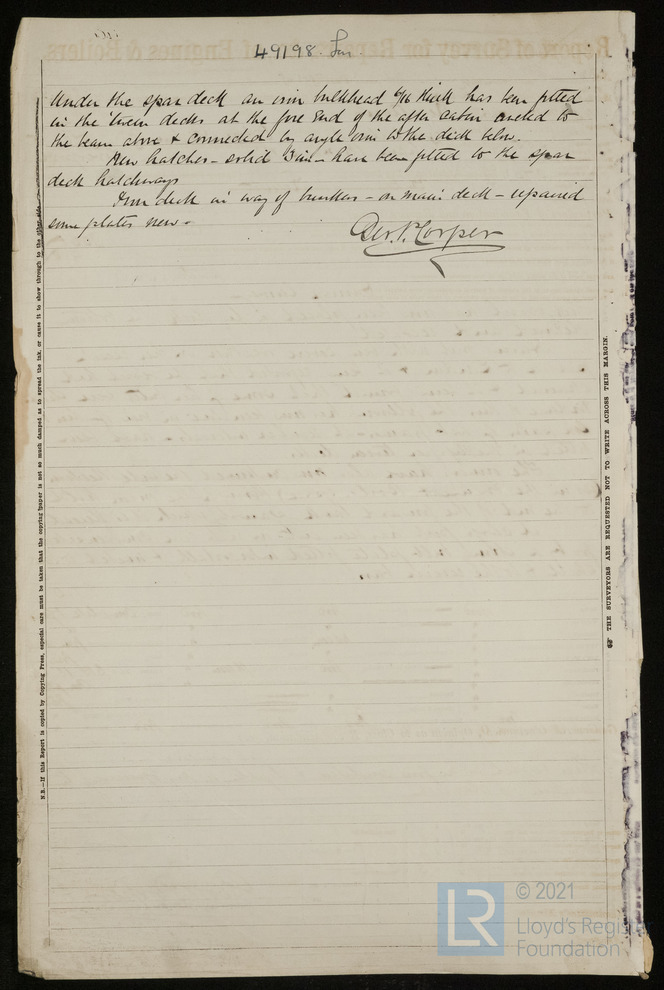 49198.
Under the spar deck an iron bulkhead 6/16 thick has been fitted
in the 'tween decks at the fore end of the after cabin riveted to
the beam above & connected by angle iron to the deck below.
New hatches - solid 3 in - have been fitted to the spar
deck hatchways
Iron deck in way of bunkers - on main deck - repaired
some plates new -
N.B.—If this Report is copied by Copying Press, especial care must be taken that the copying paper is not so much damped as to spread the ink, or cause it to show through to the other side.
THE SURVEYORS ARE REQUESTED NOT TO WRITE ACROSS THIS MARGIN.
LR
© 2021
Lloyd's Register
Foundation